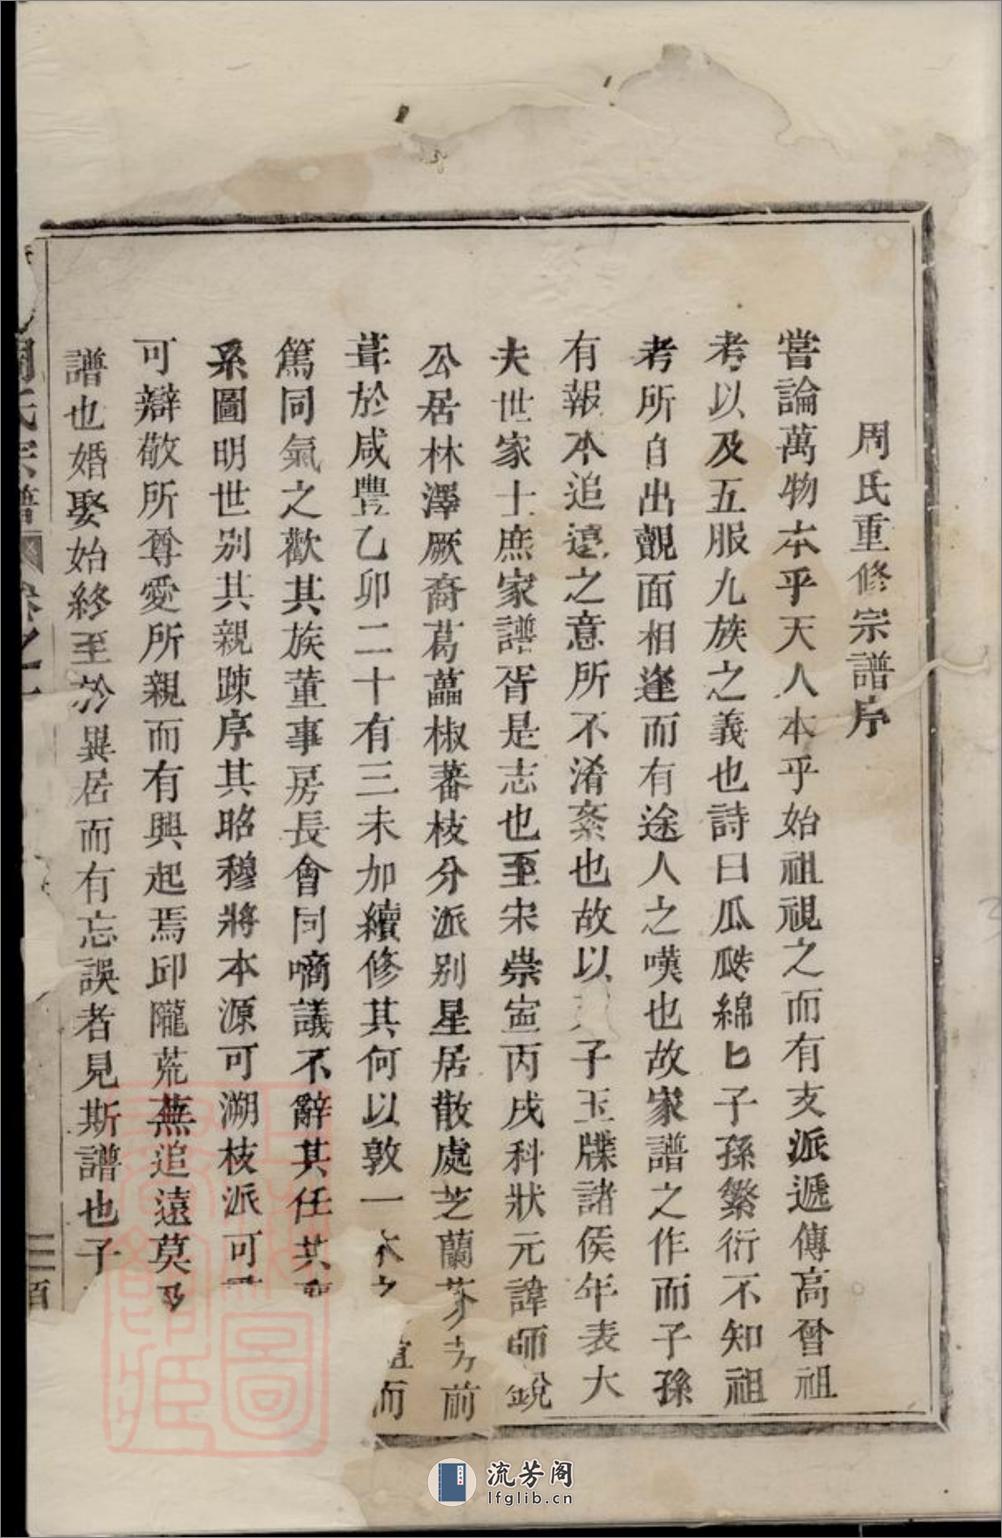 周氏重修宗譜序
嘗論萬物本乎天人本乎始祖視之而有支派遞傳高曾祖
考以及五服九族之義也詩曰瓜瓞綿匕子孫繁衍不知祖
考所自出覿面相逢而有途人之嘆也故家譜之作而子孫
有報本追遠之意所不淆紊也故以子玉牒諸侯年表大
夫世家士庶家譜胥是志也至宋崇寍丙戌科狀元諱師銳
公居林澤厥裔葛藟椒蕃枝分派别星居散處芝蘭芥前
葺於咸豐乙卯二十有三未加續修其何以敦一本之誼而
篤同氣之歡其族董事房長會同嘀議不辭其任其
系圖明世别其親踈序其昭穆將本源可溯枝派可
可辯敬所尊愛所親而有興起焉邱隴荒蕪追遠莫及
譜也婚娶始終至於異居而有忘誤者見斯譜也子
周氏宗譜
卷之一
流芳阁
lfglib.cn